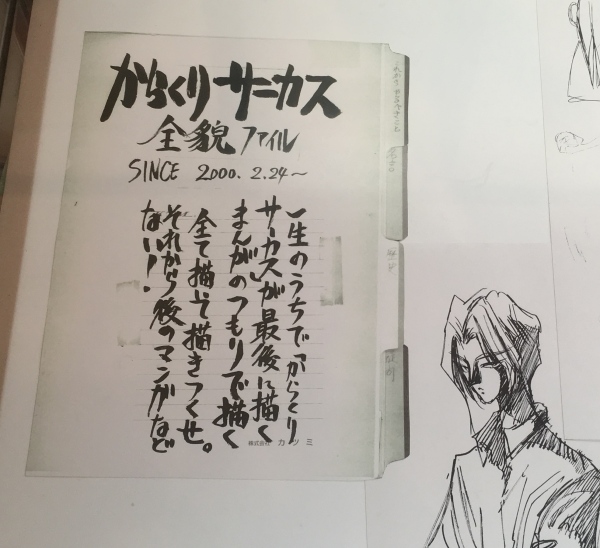 からくりサーカス
全貌ファイル
SINCE 2000. 2.24～
一生のうちで「からくり
サーカス」が最後に描く
まんがのつもりで描く
全て描いて描きつくせ。
それから後のマンガなど
ない！
株式会社 カツミ